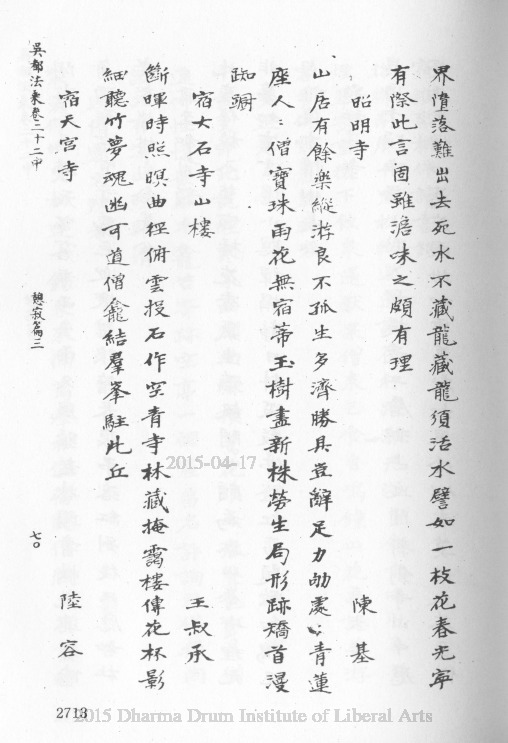 界墮落難出去死水不藏龍藏龍須活水譬如一枝花春光寧
有際此言固雖澹味之頗有理
昭明寺 陳基
山居有餘樂縱游良不孤生多濟勝具豈辭足力劬處〻青蓮
座人〻僧寶珠雨花無宿蒂玉樹盡新株勞生局形跡矯首漫
踟躕
宿大石寺山樓 王叔承
斷暉時照暝曲徑俯雲投石作空青寺林藏掩靄樓傳花杯影
細聽竹夢魂幽可道僧龕結羣峯駐此丘
宿天宮寺 陸容
吳都法乘卷二十二中 憩寂篇三 七〇
2713
2015-04-17
2015 Dharma Drum Institute of Liberal Arts